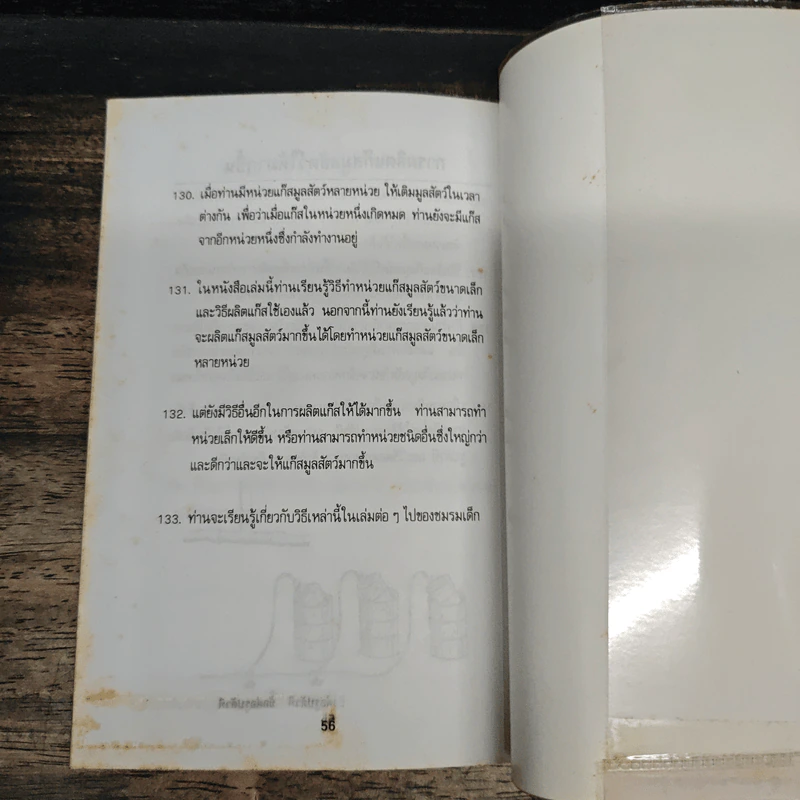 130. เมื่อท่านมีหน่วยแก๊สมูลสัตว์หลายหน่วย ให้เติมมูลสัตว์ในเวลา
ต่างกัน เพื่อว่าเมื่อแก๊สในหน่วยหนึ่งเกิดหมด ท่านยังจะมีแก๊ส
จากอีกหน่วยหนึ่งซึ่งกำลังทำงานอยู่
131. ในหนังสือเล่มนี้ท่านเรียนรู้วิธีทำหน่วยแก๊สมูลสัตว์ขนาดเล็ก
และวิธีผลิตแก๊สใช้เองแล้ว นอกจากนี้ท่านยังเรียนรู้แล้วว่าท่าน
จะผลิตแก๊สมูลสัตว์มากขึ้นได้โดยทำหน่วยแก๊สมูลสัตว์ขนาดเล็ก
หลายหน่วย
132. แต่ยังมีวิธีอื่นอีกในการผลิตแก๊สให้ได้มากขึ้น ท่านสามารถทำ
หน่วยเล็กให้ดีขึ้น หรือท่านสามารถทำหน่วยชนิดอื่นซึ่งใหญ่กว่า
และดีกว่าและจะให้แก๊สมูลสัตว์มากขึ้น
133. ท่านจะเรียนรู้เกี่ยวกับวิธีเหล่านี้ในเล่มต่อ ๆ ไปของชมรมเด็ก
56